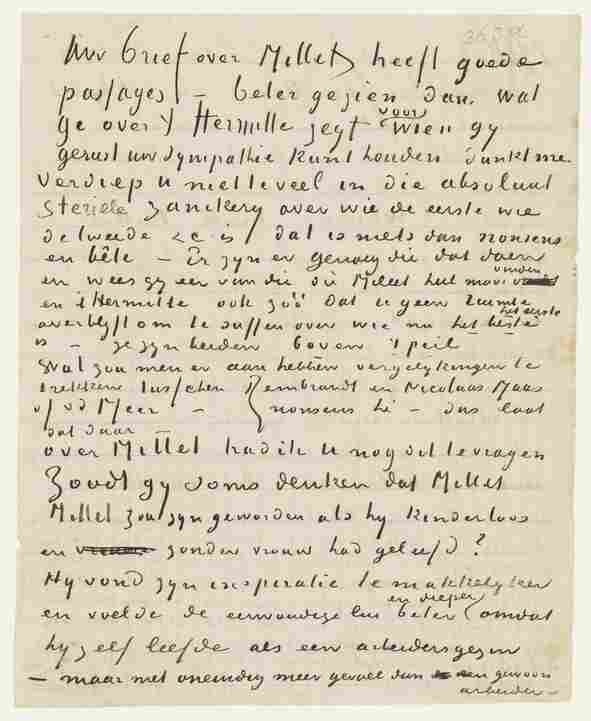 Uw brief over Millet heeft goede
passages – beter gezien dan wat
ge over Lhermitte zegt voor wien gy
gerust uw sympathie kunt houden dunkt me
Verdiep u niet te veel in die absoluut
steriele zanikery over wie de eerste wie
de tweede &c is dat is niets dan nonsens
en bête – Er zyn er genoeg die dat doen
en wees gy een van die die Millet heel mooi vinden
en Lhermitte ook zóó dat u geen ruimte
overblyft om te suffen over wie nu het beste het eerste
is – ze zyn beiden boven 't peil
Wat zou men er aan hebben vergelykingen te
trekken tusschen Rembrandt en Nicolaas Maas
of vd Meer – nonsens hé – dus laat
dat daar –
over Millet had ik u nog dit te vragen
Zoudt gy soms denken dat Millet
Millet zou zyn geworden als hy kinderloos
en zonder vrouw had geleefd?
Hy vond zyn inspiratie te makkelyker
en voelde de eenvoudige lui beter en dieper omdat
hy zelf leefde als een arbeidersgezin
– maar met oneindig meer gevoel dan een gewoon
arbeider –